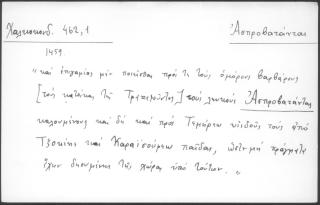 Χαλκοκονδ. 462,1
Ἀσπροβατάνται
1459.
"καὶ ἐπιγαμίας μὲν ποιεῖσθαι πρός τε τοὺς ὁμόρους βαρβάρους
[τοὺς κατοίκους τῆς Τραπεζοῦντος] τοὺς λευκοὺς Ἀσπροβατάντας
καλουμένους καὶ δὴ καὶ πρὸς Τεμήρεω υἱιδοῦς τοὺς ἀπὸ
Τζοκίης καὶ Καραϊσούφεω παῖδας, ὥστε μὴ πράγματα
ἔχειν δῃουμένης τῆς χώρας ὑπὸ τούτων. "